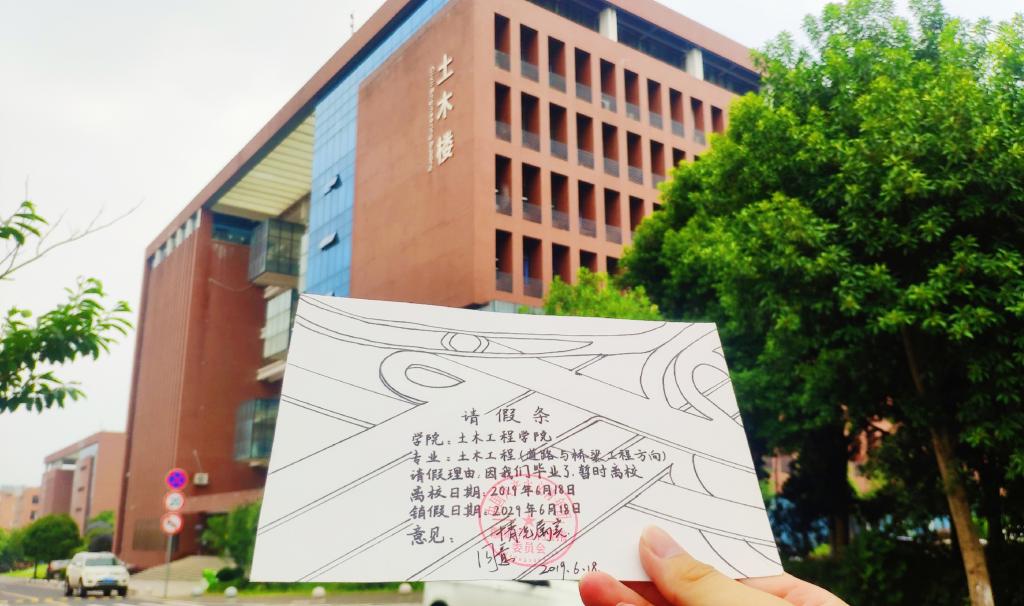 土木楼
请假条
学院：土木工程学院
专业：土木工程（道路与桥梁工程方向）
请假理由：因我们毕业了，暂时离校
离校日期：2019年6月18日
销假日期：2029年6月18日
意见：情况属实
同意
2019.6.18
委员会
20